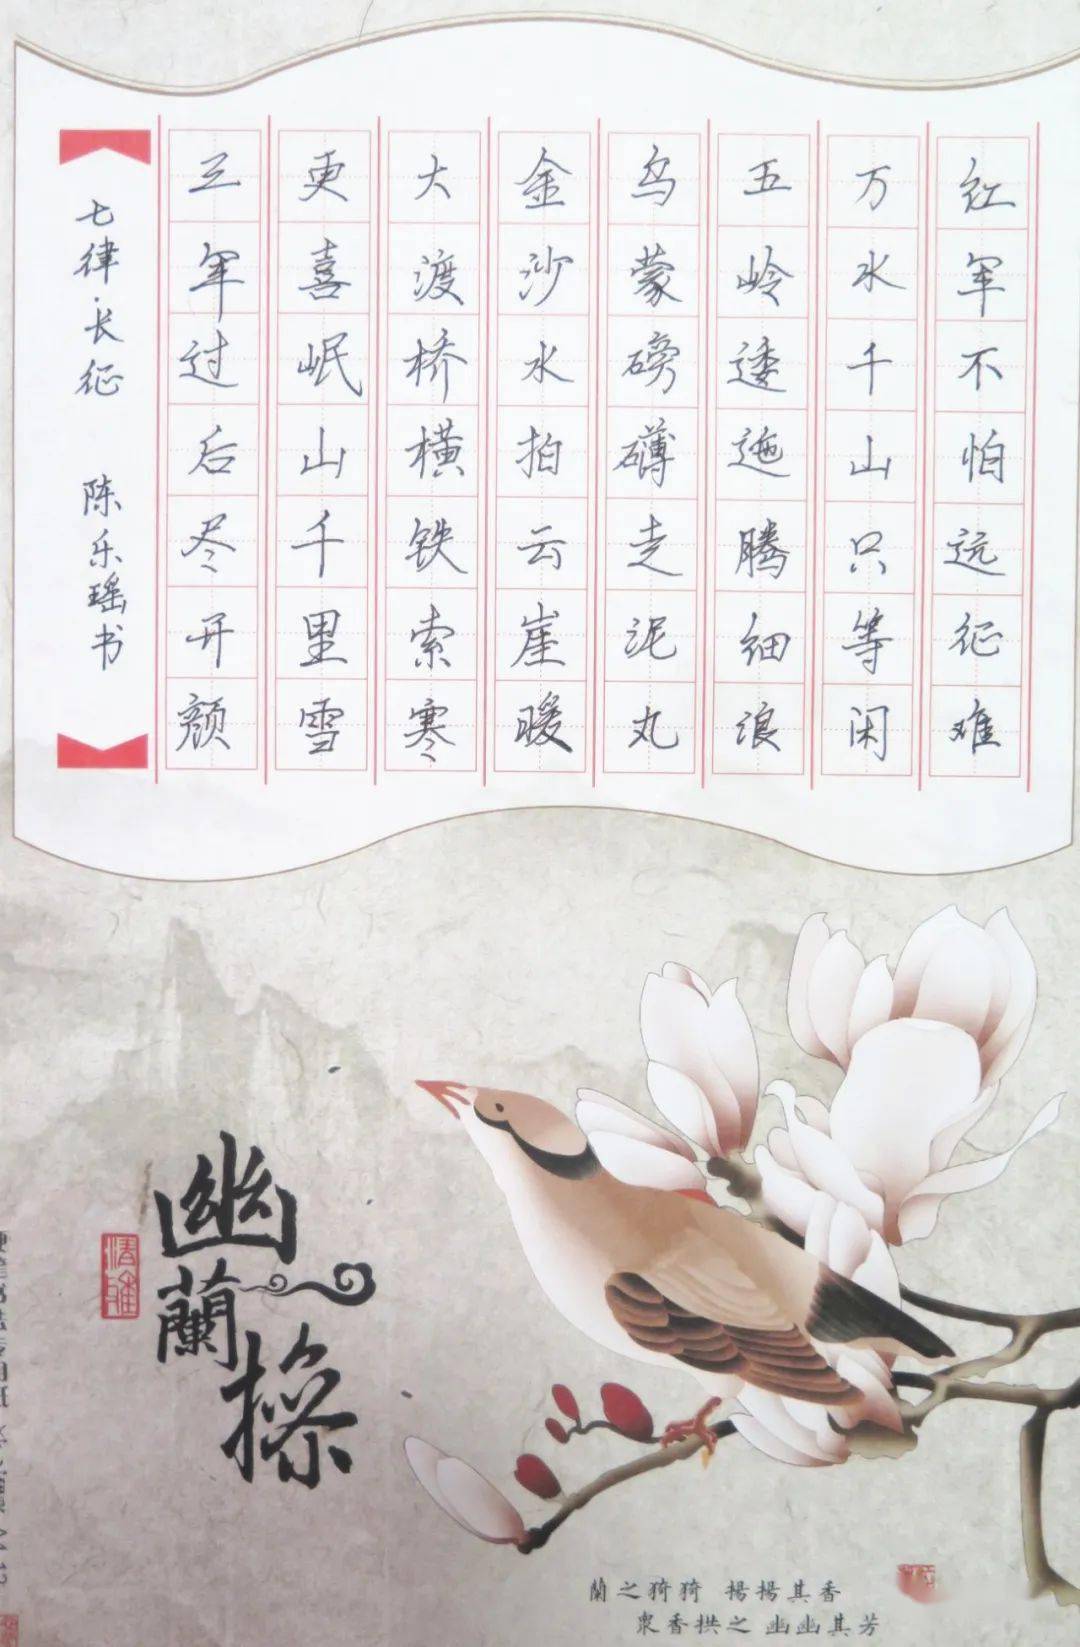 红军不怕远征难
万水千山只等闲
五岭逶迤腾细浪
乌蒙磅礴走泥丸
金沙水拍云崖暖
大渡桥横铁索寒
更喜岷山千里雪
三军过后尽开颜
七律·长征 陈乐瑶书
幽蘭操
蘭之猗猗 揚揚其香
眾香拱之 幽幽其芳